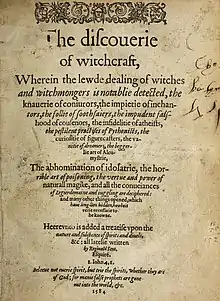 The discouerie
of witchcraft,
Wherein the lewde dealing of witches
and witchmongers is notablie detected, the
knauerie of coniurors, the impietie of inchan-
tors, the follie of soothsaiers, the impudent fals-
hood of cousenors, the infidelitie of atheists,
the pestilent practises of Pythonists, the
curiositie of figurecasters, the va-
nitie of dreamers, the begger-
lie art of Alcu-
mystrie,
The abhomination of idolatrie, the hor-
rible art of poisoning, the vertue and power of
naturall magike, and all the conueiances
of Legierdemaine and iuggling are deciphered:
and many other things opened, which
haue long lien hidden, howbeit
verie necessarie to
be knowne.
Heerevnto is added a treatise vpon the
nature and substance of spirits and diuels,
&c: all latelie written
by Reginald Scot
Esquire.
1. Iohn. 4, 1.
Beleeue not euerie spirit, but trie the spirits, whether they are
of God; for manie false prophets are gone
out into the world, &c.
1584